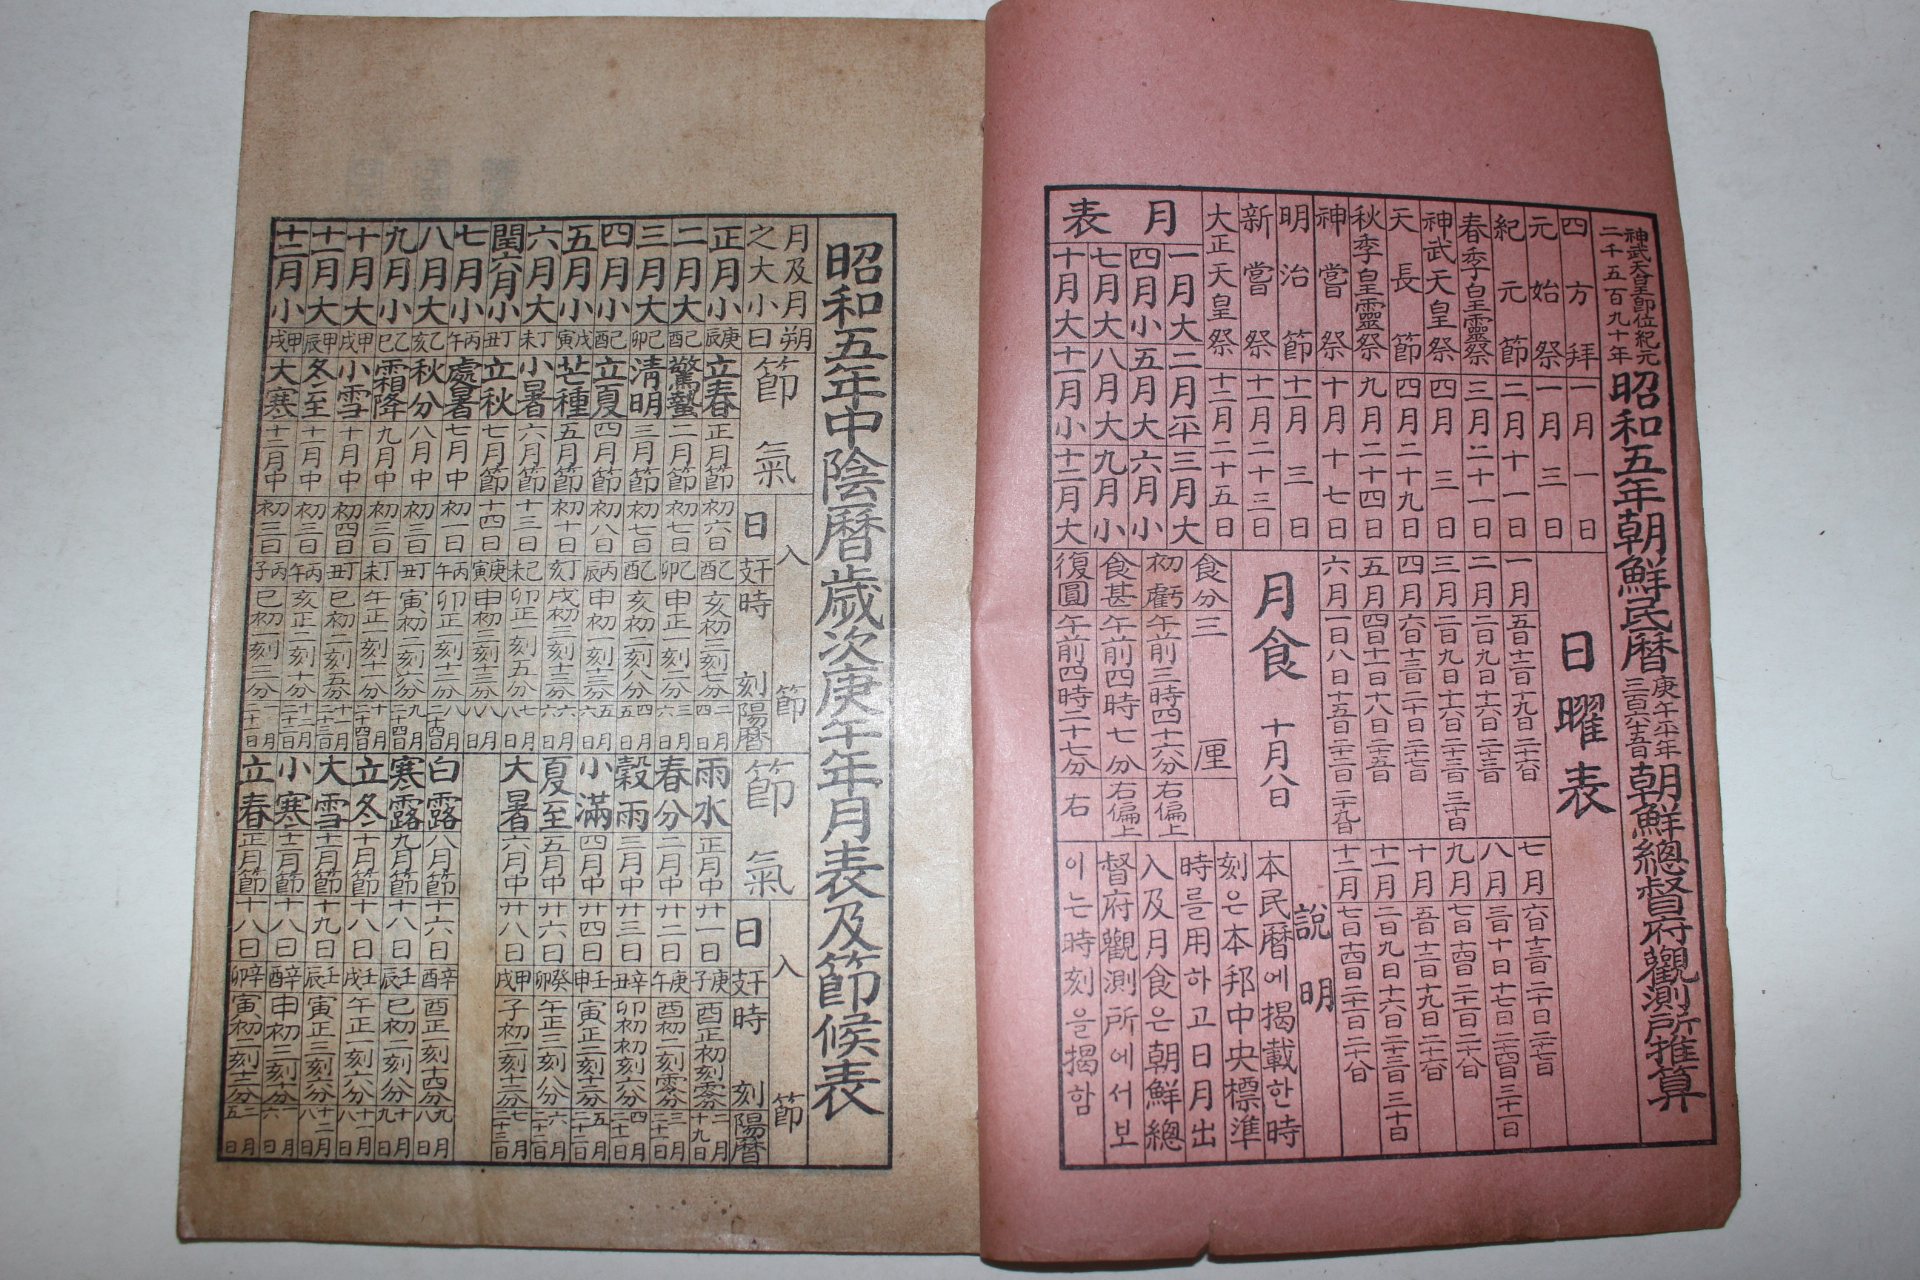 神武天皇卽位紀元
二千五百九十年
昭和五年朝鮮民曆
庚午平年
三百六十五日
朝鮮總督府觀測所推算
四方拜 一月一日
元始祭 一月三日
紀元節 二月十一日
春季皇靈祭 三月二十一日
神武天皇祭 四月三日
天長節 四月二十九日
秋季皇靈祭 九月二十四日
神嘗祭 十月十七日
明治節 十一月三日
新嘗祭 十一月二十三日
大正天皇祭 十二月二十五日
月表
一月大二月平三月大
四月小五月大六月小
七月大八月大九月小
十月大十一月小十二月大
日曜表
一月 五日十二日十九日二十六日
二月 二日九日十六日二十三日
三月 二日九日十六日二十三日三十日
四月 六日十三日二十日二十七日
五月 四日十一日十八日二十五日
六月 一日八日十五日二十二日二十九日
七月 六日十三日二十日二十七日
八月 三日十日十七日二十四日三十一日
九月 七日十四日二十一日二十八日
十月 五日十二日十九日二十六日
十一月 二日九日十六日二十三日三十日
十二月 七日十四日二十一日二十八日
月食 十月八日
食分三厘
初虧 午前三時四十六分 右偏上
食甚 午前四時七分 右偏上
復圓 午前四時二十七分 右
說明
本民曆에揭載한時
刻은本邦中央標準
時를用하고日月出
入及月食은朝鮮總
督府觀測所에서보
이는時刻을揭함
昭和五年中陰曆歲次庚午年月表及節候表
月及月之大小 朔日 節氣 入節 日 干支 時刻 陽曆 節氣 入節 日 干支 時刻 陽曆
正月小 庚辰 立春 正月節 初六日 乙酉 亥初二刻七分 二月四日 雨水 正月中 廿一日 庚子 酉正初刻零分 二月十九日
二月大 己酉 驚蟄 二月節 初七日 乙卯 申正一刻 三月六日 春分 二月中 廿二日 庚午 酉初二刻零分 三月二十一日
三月大 己卯 淸明 三月節 初七日 乙酉 亥初二刻八分 四月五日 穀雨 三月中 廿三日 辛丑 卯初初刻六分 四月二十一日
四月小 己酉 立夏 四月節 初八日 丙辰 申初一刻十三分 五月六日 小滿 四月中 廿四日 壬申 寅正二刻十二分 五月二十二日
五月小 戊寅 芒種 五月節 初十日 丁亥 戌初三刻十三分 六月六日 夏至 五月中 廿六日 癸卯 午正三刻八分 六月二十二日
六月大 丁未 小暑 六月節 十三日 己未 卯正一刻五分 七月八日 大暑 六月中 廿八日 甲戌 子初二刻十二分 七月二十三日
閏六月小 丁丑 立秋 七月節 十四日 庚寅 申初三刻十三分 八月八日
七月小 丙午 處暑 七月中 初一日 丙午 卯正一刻十二分 八月二十四日 白露 八月節 十六日 辛酉 酉正二刻十四分 九月八日
八月大 乙亥 秋分 八月中 初三日 丁丑 寅初二刻六分 九月二十四日 寒露 九月節 十八日 壬辰 巳初二刻八分 十月九日
九月小 乙巳 霜降 九月中 初三日 丁未 午正一刻十一分 十月二十四日 立冬 十月節 十八日 壬戌 午正一刻六分 十一月八日
十月大 甲戌 小雪 十月中 初四日 丁丑 巳初二刻五分 十一月二十三日 大雪 十一月節 十九日 壬辰 寅正三刻六分 十二月八日
十一月大 甲辰 冬至 十一月中 初三日 丙午 亥正二刻十分 十二月二十二日 小寒 十二月節 十八日 辛酉 申初三刻十一分 一月六日
十二月小 甲戌 大寒 十二月中 初三日 丙子 巳初一刻三分 一月二十一日 立春 正月節 十八日 辛卯 寅初二刻十一分 二月五日